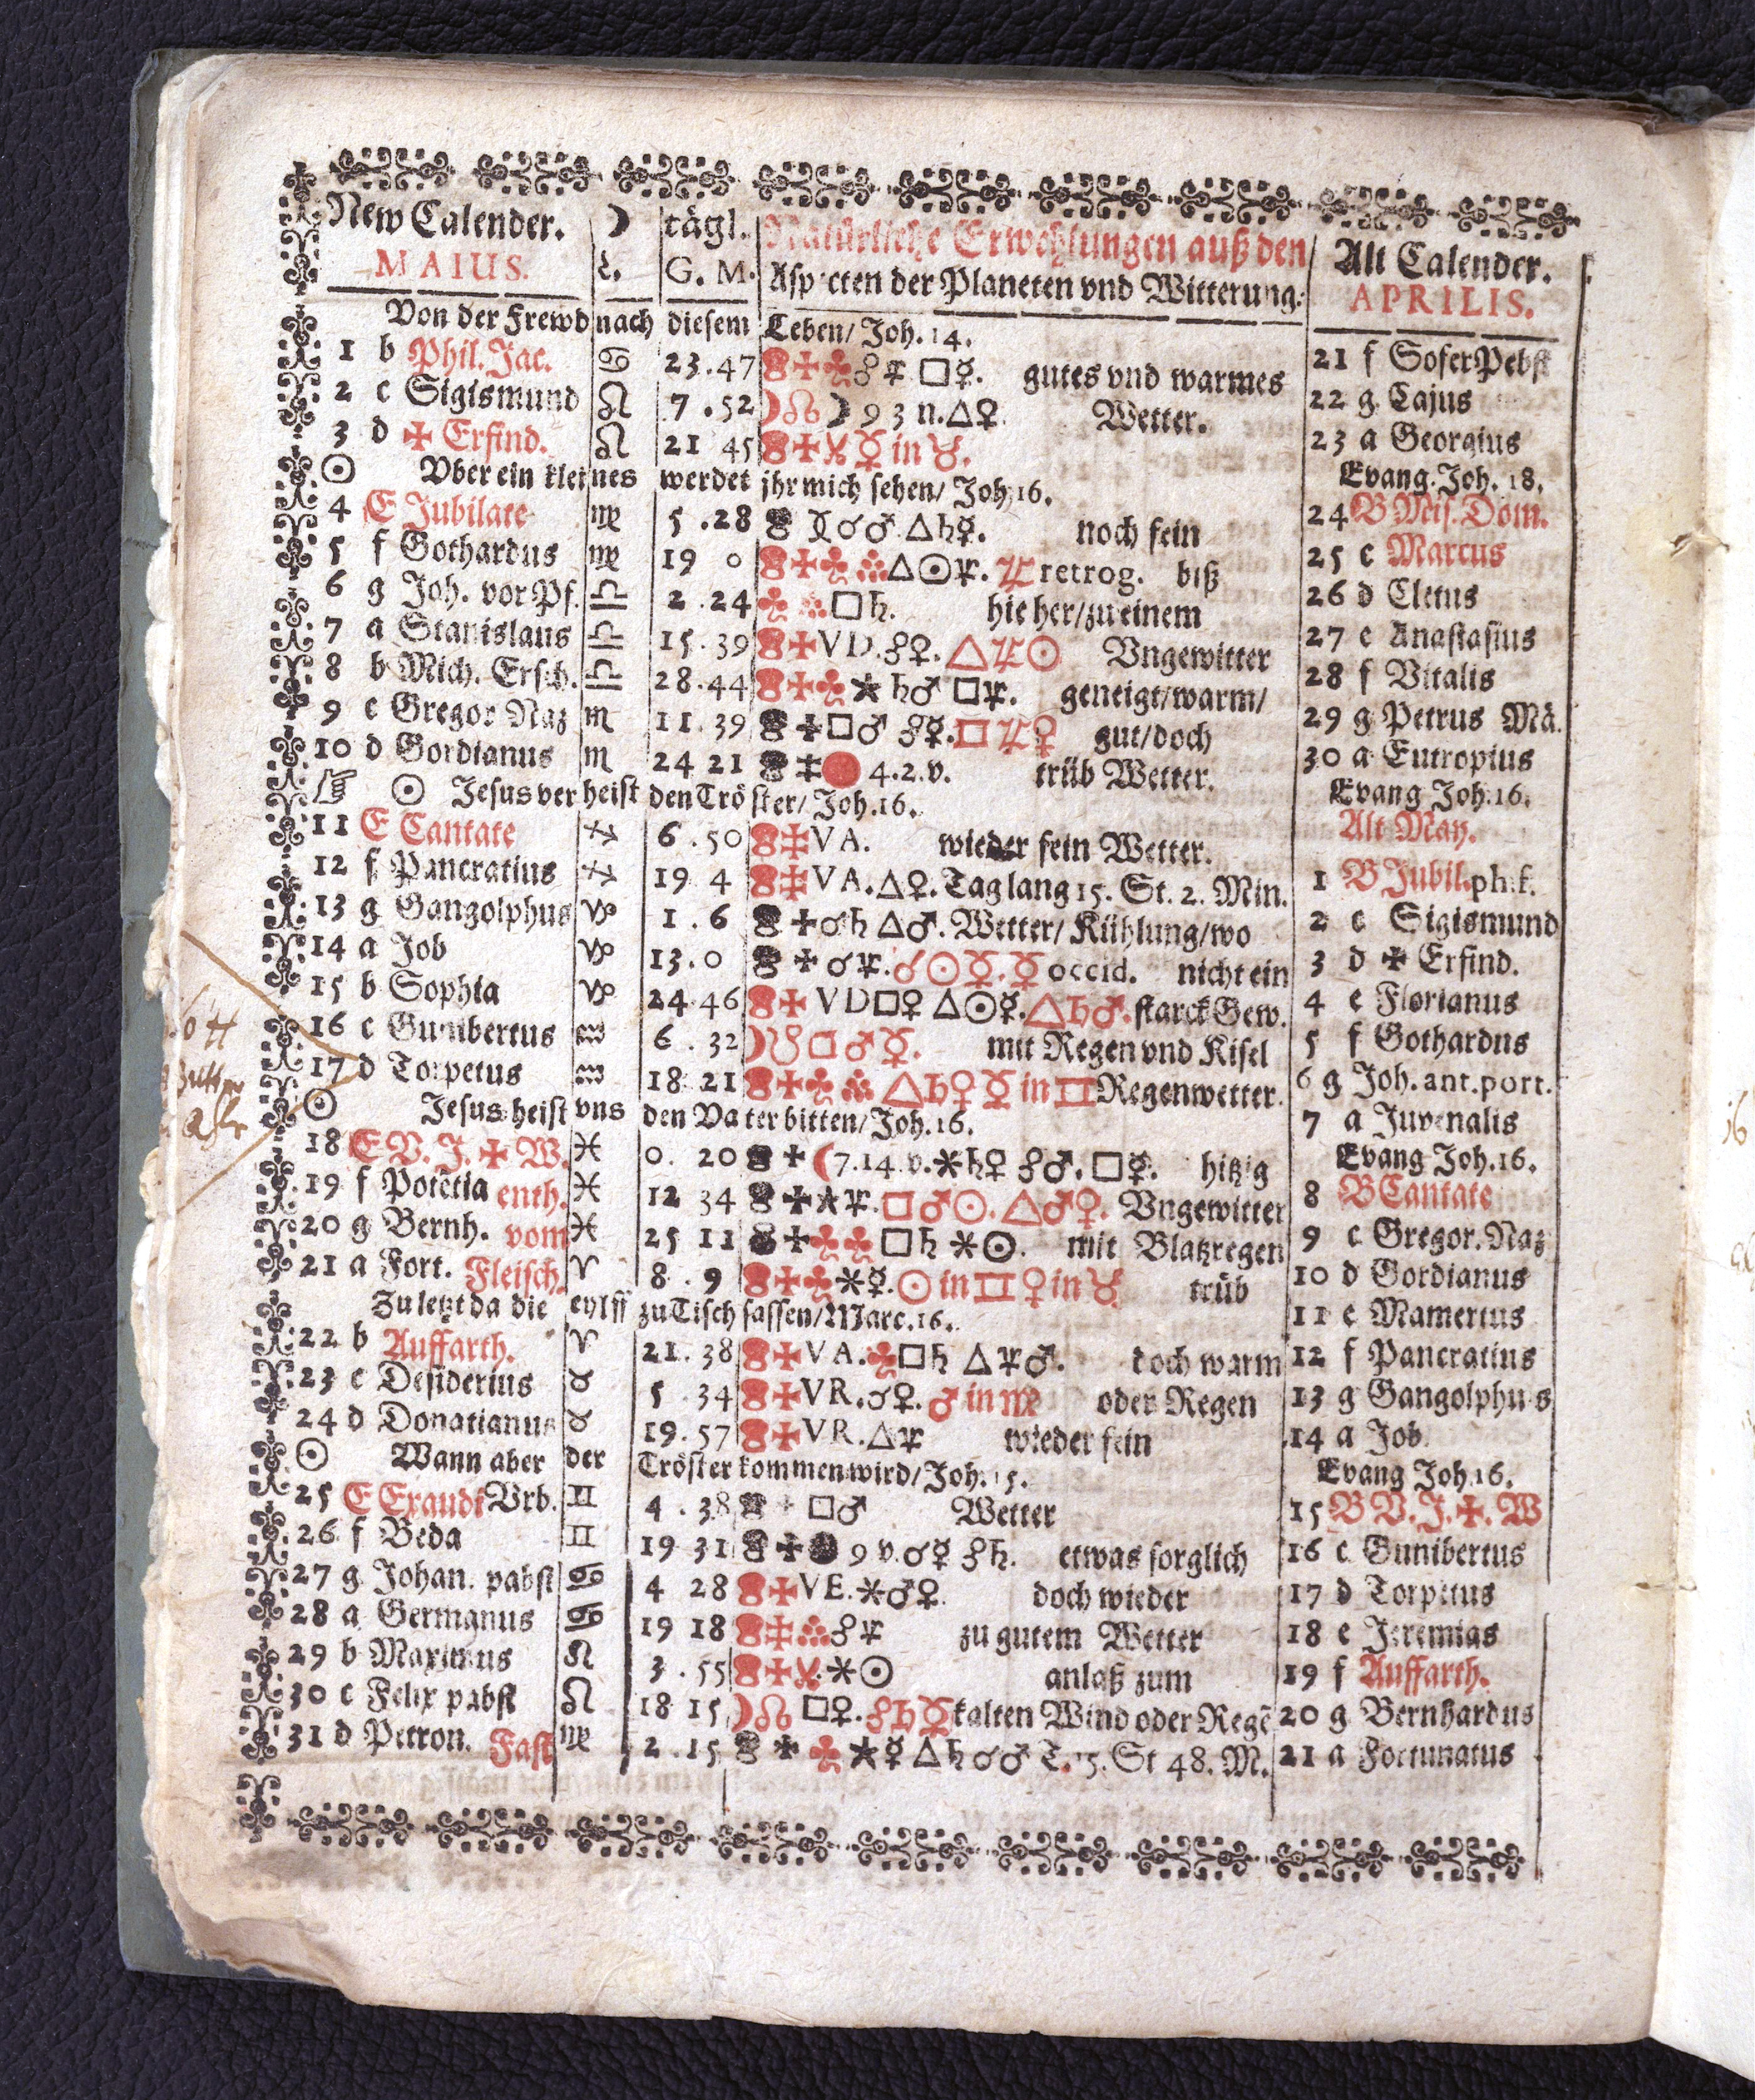 New Calender. ☽ tägl. Natürliche Erwehlungen auß den Alt Calender.
MAIUS. G. M. Aspecten der Planeten vnd Witterung. APRILIS.
Von der Frewd nach diesem Leben/ Joh. 14.
1 b Phil. Jac. ♋ 23.47 ☍♃ □☿. gutes vnd warmes 21 f Sofer Pebst
2 c Sigismund ♌ 7.52 ☽☊ ☽ 9 3 n. △♀. Wetter. 22 g Cajus
3 d ✠ Erfind. ♌ 21 45 ☿ in ♉. 23 a Georgius
☉ Vber ein kleines werdet jhr mich sehen/ Joh. 16. Evang. Joh. 18.
4 E Jubilate ♍ 5.28 ☌♂ △♄☿. noch fein 24 B Mis. Dom.
5 f Gothardus ♍ 19 0 △☉♃. ♃ retrog. biß 25 c Marcus
6 g Joh. vor Pf. ♎ 2.24 □♄. hieher/ zu einem 26 d Cletus
7 a Stanislaus ♎ 15.39 VD. ☍♀. △♃☉ Vngewitter 27 e Anastasius
8 b Mich. Ersch. ♎ 28.44 ⚹ ♄♂ □♃. geneigt/ warm/ 28 f Vitalis
9 c Gregor Naz ♏ 11.39 □♂ ☍☿. □♃♀ gut/ doch 29 g Petrus Mä.
10 d Gordianus ♏ 24 21 4.2.v. trüb Wetter. 30 a Eutropius
☞ ☉ Jesus verheist den Tröster/ Joh. 16. Evang Joh. 16.
11 E Cantate ♐ 6.50 VA. wieder fein Wetter. Alt May.
12 f Pancratius ♐ 19 4 VA. △♀. Tag lang 15. St. 2. Min. 1 B Jubil. ph. f.
13 g Gangolphus ♑ 1.6 ☌♄ △♂. Wetter/ Kühlung/ wo 2 c Sigismund
14 a Job ♑ 13.0 ☌♃. ☌☉☿. ☿ occid. nicht ein 3 d ✠ Erfind.
15 b Sophia ♑ 24 46 VD □♀ △☉☿. △♄♂. starck Gew. 4 e Florianus
16 c Gunibertus ♒ 6.32 ☽☋ □♂☿. mit Regen vnd Kisel 5 f Gothardus
17 d Torpetus ♒ 18 21 △♄♀ ☿ in ♊ Regenwetter. 6 g Joh. ant. port.
☉ Jesus heist vns den Vater bitten/ Joh. 16. 7 a Juvenalis
18 E V. J. ✠ W. ♓ 0. 20 ☾ 7.14 v. ⚹♄♀ ☍♂. □☿. hitzig Evang Joh. 16.
19 f Potẽtia enth. ♓ 12 34 ⚹♃. □♂☉. △♂♀. Vngewitter 8 B Cantate
20 g Bernh. vom ♓ 25 11 □♄ ⚹☉. mit Blatzregen 9 c Gregor. Naz
21 a Fort. Fleisch. ♈ 8.9 ⚹☿. ☉ in ♊ ♀ in ♉ trüb 10 d Gordianus
Zu letzt da die eylff zu Tisch sassen/ Marc. 16. 11 e Mamertus
22 b Auffarth. ♈ 21.38 VA. □♄ △♃♂. doch warm 12 f Pancratius
23 c Desiderius ♉ 5.34 VR. ☌♀. ♂ in ♍ oder Regen 13 g Gangolphus
24 d Donatianus ♉ 19.57 VR. △♃ wieder fein 14 a Job
☉ Wann aber der Tröster kommen wird/ Joh. 15. Evang Joh. 16.
25 E Exaudi Vrb. ♊ 4.38 □♂ Wetter 15 B V. J. ✠. W
26 f Beda ♊ 19 31 9 v. ☌☿ ☍♄. etwas sorglich 16 c Gunibertus
27 g Johan. pabst ♋ 4 28 VE. ⚹♂♀. doch wieder 17 d Torpetus
28 a Germanus ♋ 19 18 ☍♃ zu gutem Wetter 18 e Jeremias
29 b Maximus ♌ 3.55 ⚹☉ anlaß zum 19 f Auffarth.
30 c Felix pabst ♌ 18 15 ☽☊ □♀. ☍♄☿ kalten Wind oder Regẽ 20 g Bernhardus
31 d Petron. Fast ♍ 2.15 ⚹☿ △♄ ☌♂ T. 15. St 48. M. 21 a Fortunatus